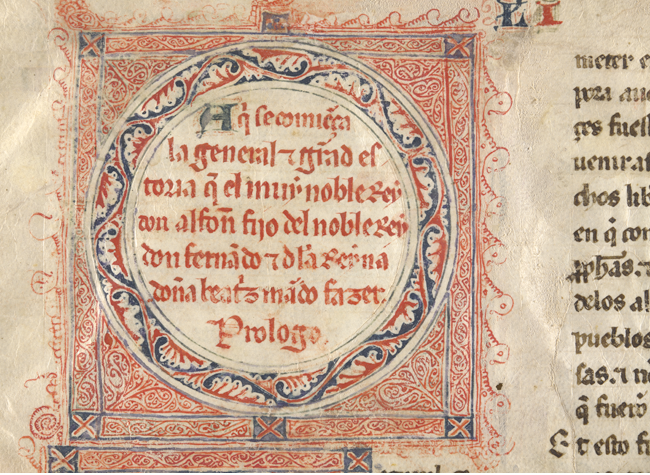 LI
Aq̃ se comiẽça
la general ⁊ grãd es
toria q̃ el muy noble Rey
don alfoñ fijo del noble Rey
don fernãdo ⁊ dla Reyna
doña beatz mãdo fazer.
Prologo.
meter e
pora aue
ges fuess
uenirat
chos lib
en q̃ con
pphãs. ⁊
delos al
pueblos
sas. ⁊ n
q̃ fuerõ
Et esto fu